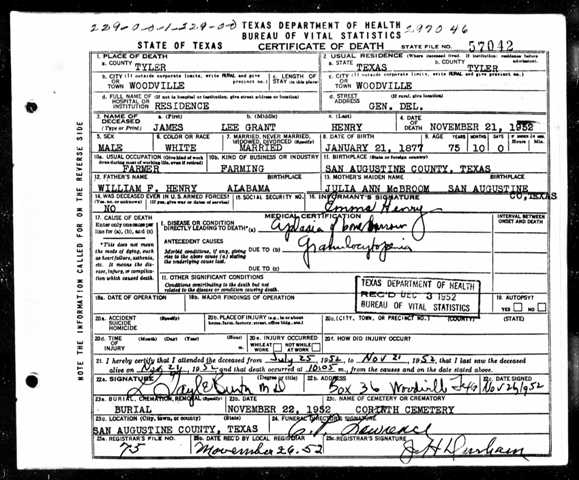 229-0-0-1-229-0-0 TEXAS DEPARTMENT OF HEALTH 297046
BUREAU OF VITAL STATISTICS
STATE OF TEXAS CERTIFICATE OF DEATH STATE FILE NO. 57042
1. PLACE OF DEATH 2. USUAL RESIDENCE
a. COUNTY TYLER a. STATE TEXAS b. COUNTY TYLER
b. CITY (If outside corporate limits, write RURAL and give precinct no.) OR TOWN WOODVILLE c. LENGTH OF STAY (in this place) c. CITY (If outside corporate limits, write RURAL and give precinct no.) OR TOWN WOODVILLE
d. FULL NAME OF (If not in hospital or institution, give street address or location) HOSPITAL OR INSTITUTION RESIDENCE d. STREET ADDRESS GEN. DEL.
3. NAME OF DECEASED (Type or Print) a. (First) JAMES b. (Middle) LEE GRANT c. (Last) HENRY 4. DATE OF DEATH NOVEMBER 21, 1952
5. SEX MALE 6. COLOR OR RACE WHITE 7. MARRIED, NEVER MARRIED, WIDOWED, DIVORCED (Specify) MARRIED 8. DATE OF BIRTH JANUARY 21, 1877 9. AGE YEARS 75 10 0
10a. USUAL OCCUPATION (Give kind of work done during most of working life, even if retired) FARMER 10b. KIND OF BUSINESS OR INDUSTRY FARMING 11. BIRTHPLACE (State or foreign country) SAN AUGUSTINE COUNTY, TEXAS
12. FATHER'S NAME BIRTHPLACE 13. MOTHER'S MAIDEN NAME BIRTHPLACE
WILLIAM F. HENRY ALABAMA JULIA ANN McBROOM SAN AUGUSTINE CO, TEXAS
14. WAS DECEASED EVER IN U.S. ARMED FORCES? (Yes, no, or unknown) (If yes, give war or dates of service) NO 15. SOCIAL SECURITY NO. 16. INFORMANT'S SIGNATURE Emma Henry
17. CAUSE OF DEATH MEDICAL CERTIFICATION INTERVAL BETWEEN ONSET AND DEATH
Enter only one cause per line for (a), (b), and (c)
I. DISEASE OR CONDITION DIRECTLY LEADING TO DEATH* (a) Aplasia of bone marrow
ANTECEDENT CAUSES
*This does not mean the mode of dying, such as heart failure, asthenia, etc. It means the disease, injury, or complication which caused death.
Morbid conditions, if any, giving rise to the above cause (a) stating the underlying cause last. DUE TO (b) Granulocytopenia
DUE TO (c)
II. OTHER SIGNIFICANT CONDITIONS
Conditions contributing to the death but not related to the disease or condition causing death.
TEXAS DEPARTMENT OF HEALTH
REC'D DEC 3 1952
BUREAU OF VITAL STATISTICS
18a. DATE OF OPERATION 18b. MAJOR FINDINGS OF OPERATION 19. AUTOPSY? YES NO
20a. ACCIDENT SUICIDE HOMICIDE (Specify) 20b. PLACE OF INJURY (e.g., in or about home, farm, factory, street, office bldg., etc.) 20c. (CITY, TOWN, OR PRECINCT NO.) (COUNTY) (STATE)
20d. TIME OF INJURY (Month) (Day) (Year) (Hour) 20e. INJURY OCCURRED WHILE AT WORK NOT WHILE AT WORK 20f. HOW DID INJURY OCCUR?
21. I hereby certify that I attended the deceased from July 25 1952, to Nov 21, 1952, that I last saw the deceased
alive on 1952 and that death occurred at 10:05 m., from the causes and on the date stated above.
22a. SIGNATURE M D 22b. ADDRESS Box 36 Woodville 22c. DATE SIGNED Nov 26, 1952
23a. BURIAL, CREMATION, REMOVAL (Specify) BURIAL 23b. DATE NOVEMBER 22, 1952 23c. NAME OF CEMETERY OR CREMATORY CORINTH CEMETERY
23d. LOCATION (City, town, or county) (State) SAN AUGUSTINE COUNTY, TEXAS 24. FUNERAL DIRECTOR'S SIGNATURE Lawrence
25a. REGISTRAR'S FILE NO. 75 25b. DATE REC'D BY LOCAL REGISTRAR November 26-52 25c. REGISTRAR'S SIGNATURE J H Durham
NOTE THE INFORMATION CALLED FOR ON THE REVERSE SIDE